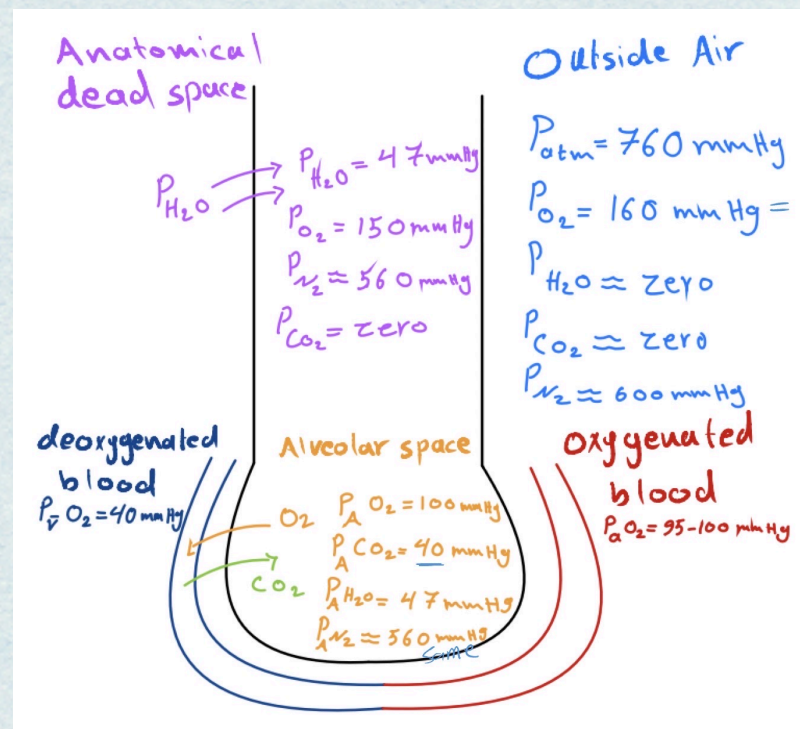 Anatomical
dead space
P H₂O
P H₂O = 47 mmHg
P O₂ = 150 mmHg
P N₂ ≈ 560 mmHg
P CO₂ = zero
Outside Air
P atm = 760 mmHg
P O₂ = 160 mmHg =
P H₂O ≈ zero
P CO₂ ≈ zero
P N₂ ≈ 600 mmHg
deoxygenated
blood
P v̄ O₂ = 40 mmHg
Alveolar space
O₂
CO₂
P A O₂ = 100 mmHg
P A CO₂ = 40 mmHg
P A H₂O = 47 mmHg
P A N₂ ≈ 560 mmHg
same
oxygenated
blood
P a O₂ = 95-100 mmHg